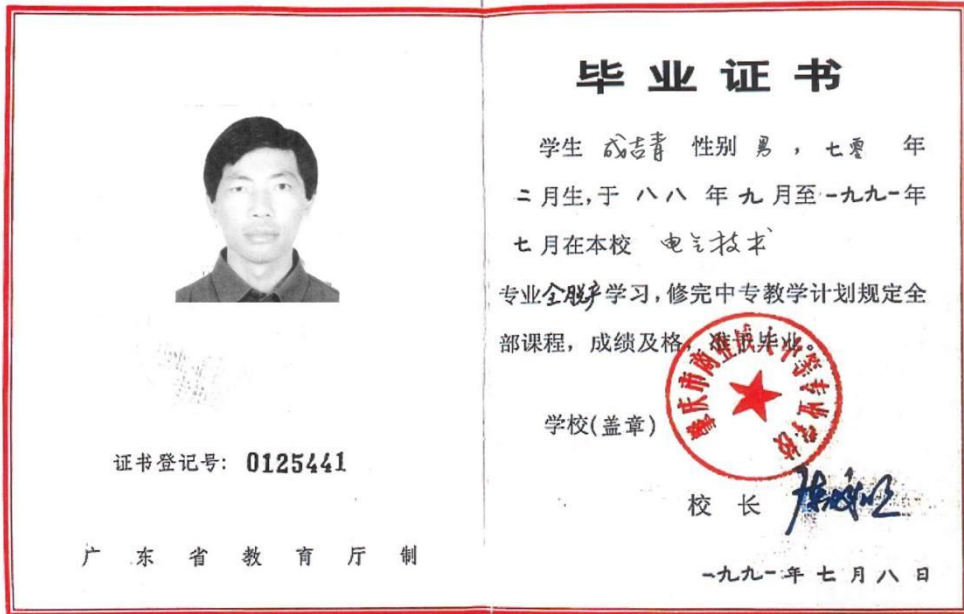 证书登记号：0125441
广东省教育厅制
毕业证书
学生 成吉青 性别 男，七零 年
二月生，于 八八 年 九 月至一九九一年
七月在本校 电气技术
专业全脱产学习，修完中专教学计划规定全
部课程，成绩及格，准予毕业。
肇庆市商业成人中等专业学校
学校(盖章)
校 长
一九九一年 七 月 八 日